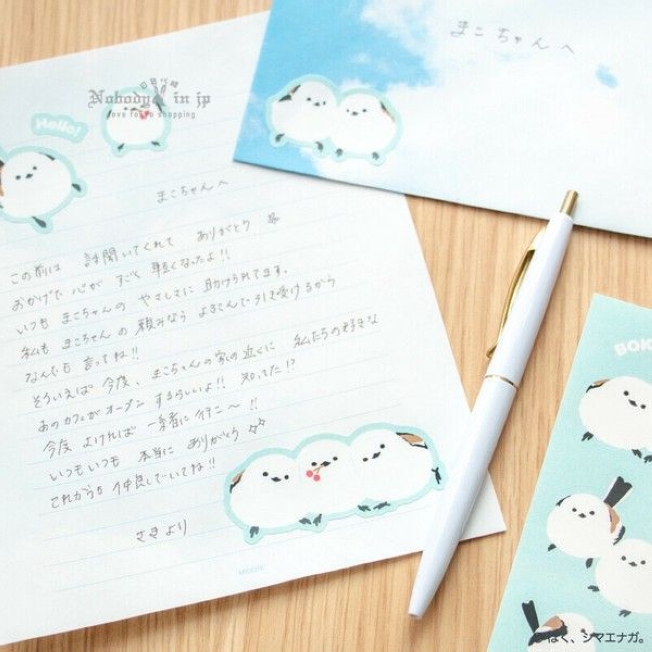 Nobody in jp
love for you shopping
Hello!
まこちゃんへ
まこちゃんへ
この前は 話聞いてくれて ありがとう
おかげで 心が すごく 軽くなったよ!!
いつも まこちゃんの やさしさに 助けられてます。
私も まこちゃんの 頼みなら よろこんで 引き受けるから
なんでも 言ってね!!
そういえば 今度、まこちゃんの家の近くに 私たちの好きな
あのカフェが オープン するらしいよ!! 知ってた!?
今度 よければ 一緒に 行こ〜!!
いつもいつも 本当に ありがとう
これからも 仲良しでいてね!!
さきより
MIDORI
BOK
ぼく、シマエナガ。